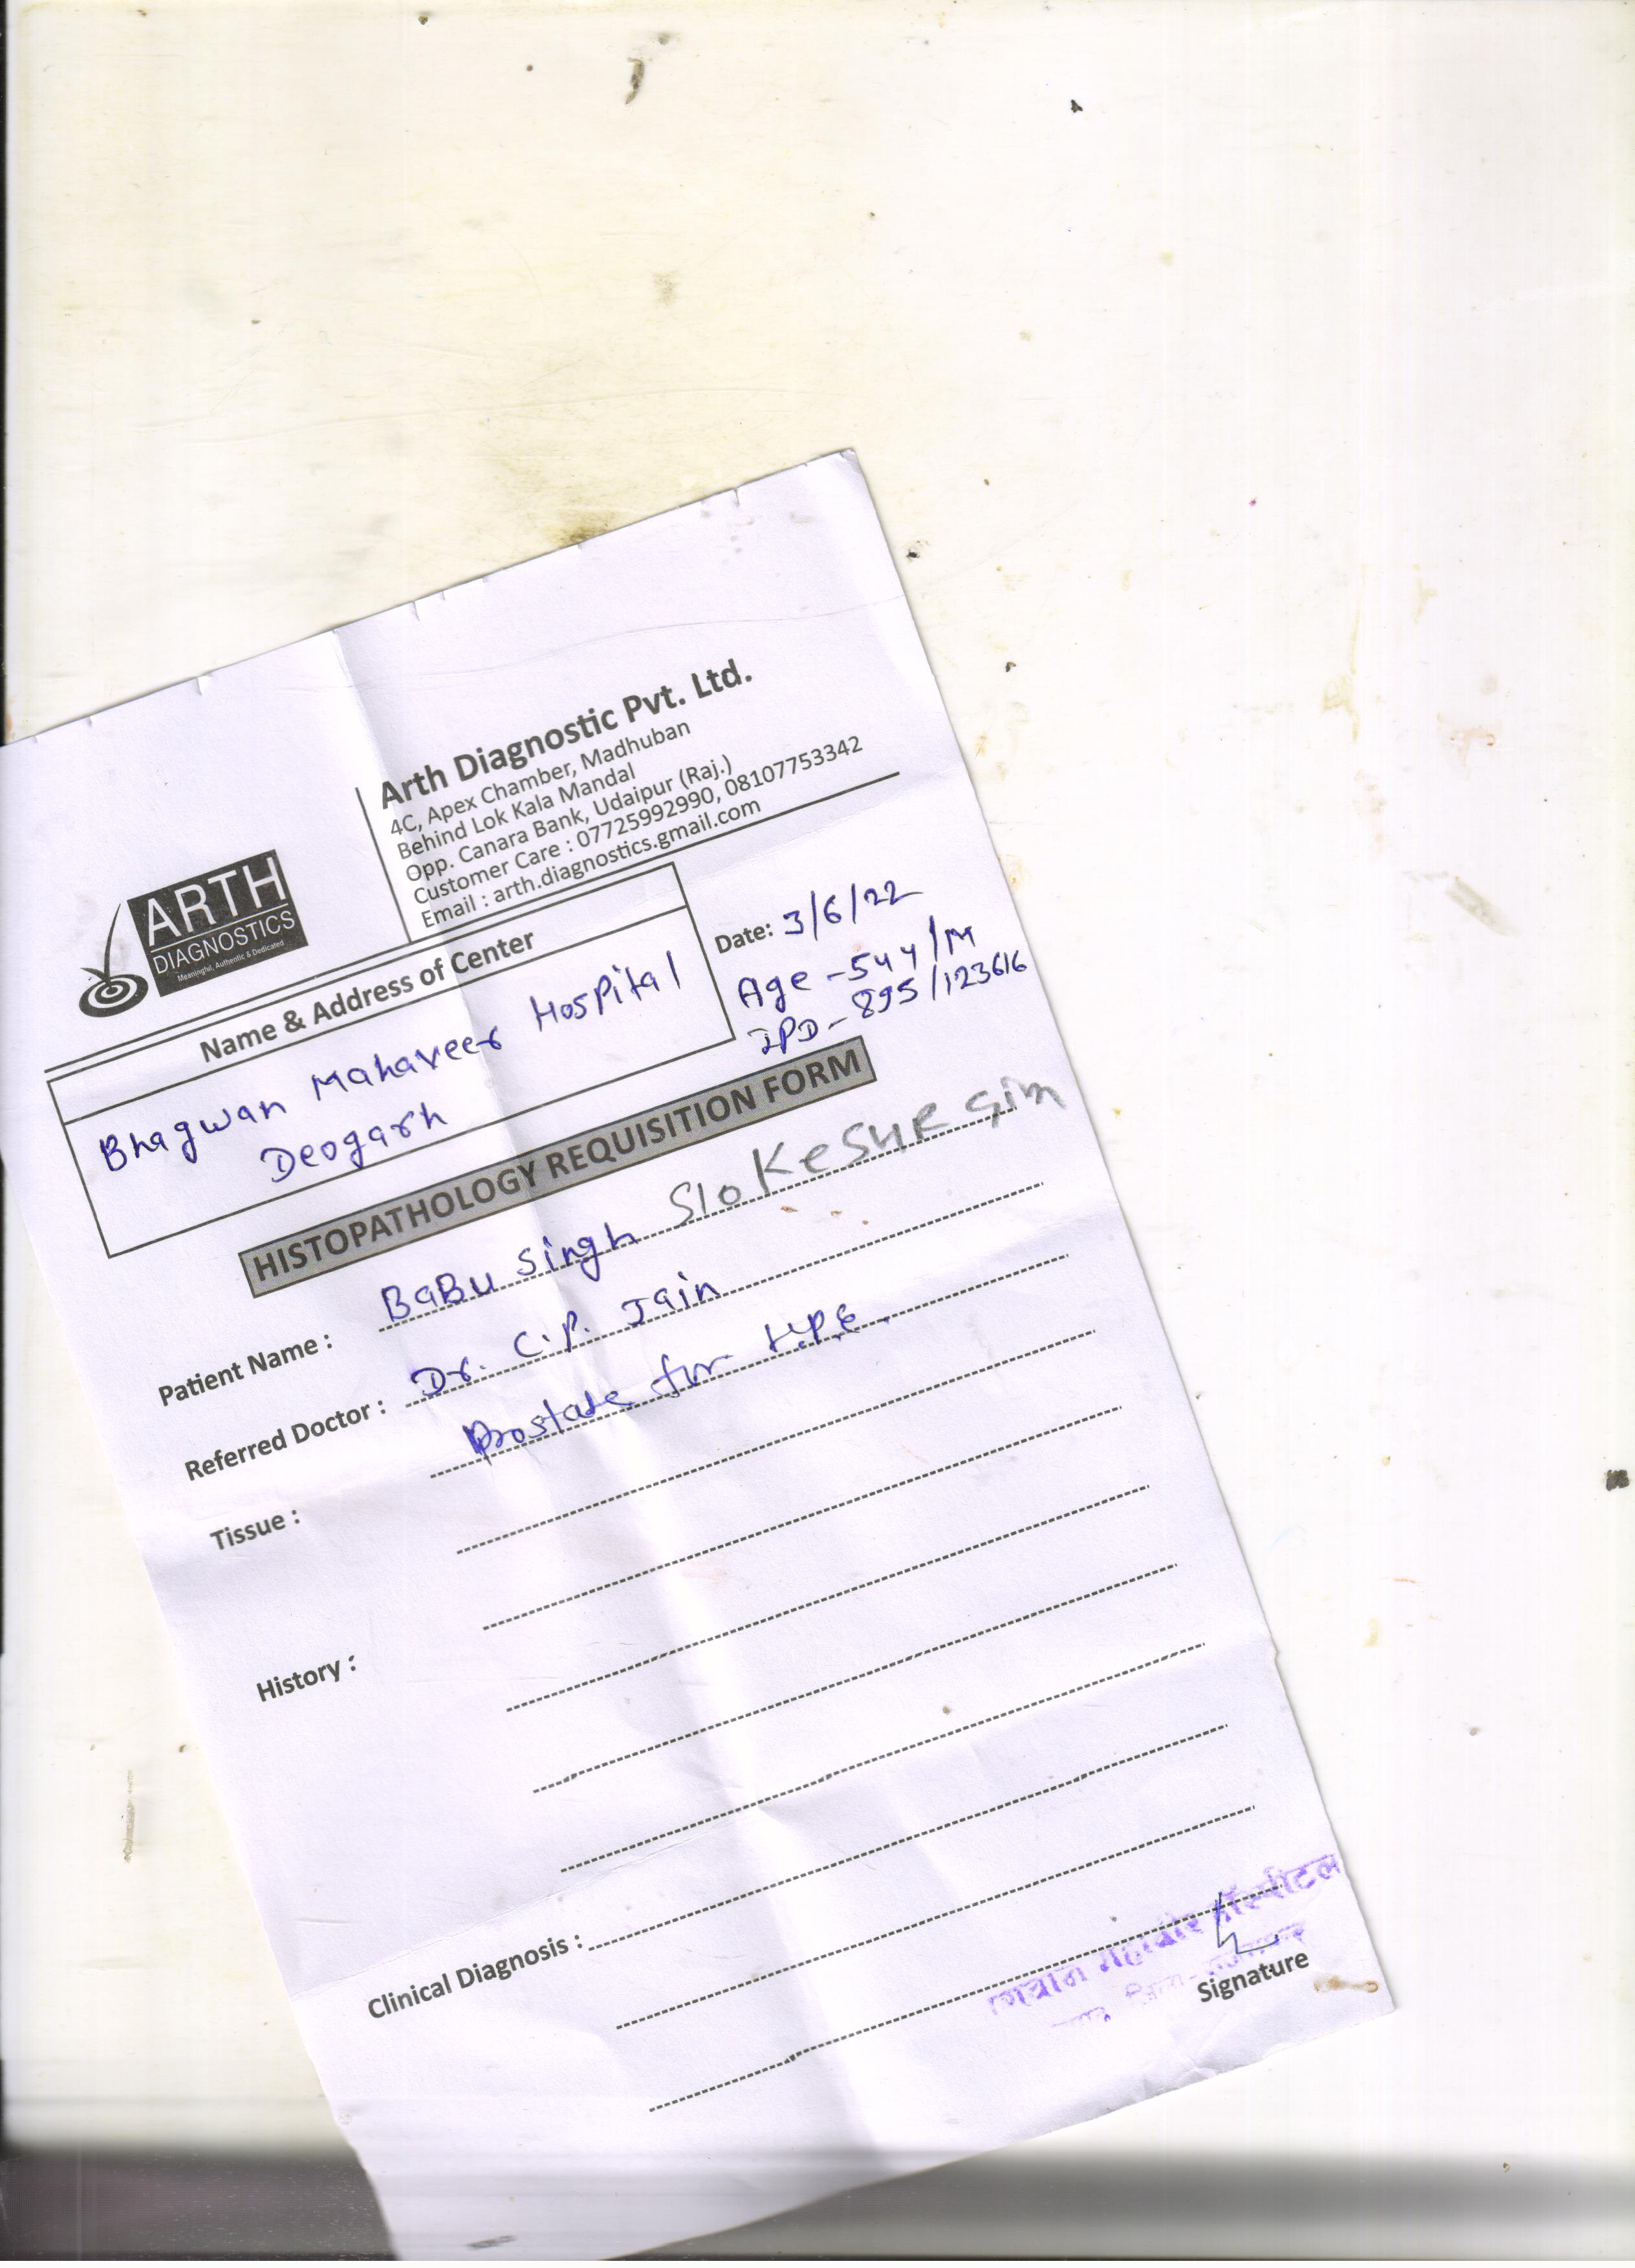 ARTH
DIAGNOSTICS
Meaningful, Authentic & Dedicated
Arth Diagnostic Pvt. Ltd.
4C, Apex Chamber, Madhuban
Behind Lok Kala Mandal
Opp. Canara Bank, Udaipur (Raj.)
Customer Care : 07725992990, 08107753342
Email : arth.diagnostics.gmail.com
Name & Address of Center
Bhagwan Mahaveer Hospital
Deogarh
Date: 3/6/22
Age - 54y/M
IPD - 895/123616
HISTOPATHOLOGY REQUISITION FORM
Patient Name : BaBu Singh S/o KeSHR
Referred Doctor : Dr. C.P. Jain
Tissue : Prostate for H.P.E.
History :
Clinical Diagnosis :
महावीर हॉस्पीटल
Signature